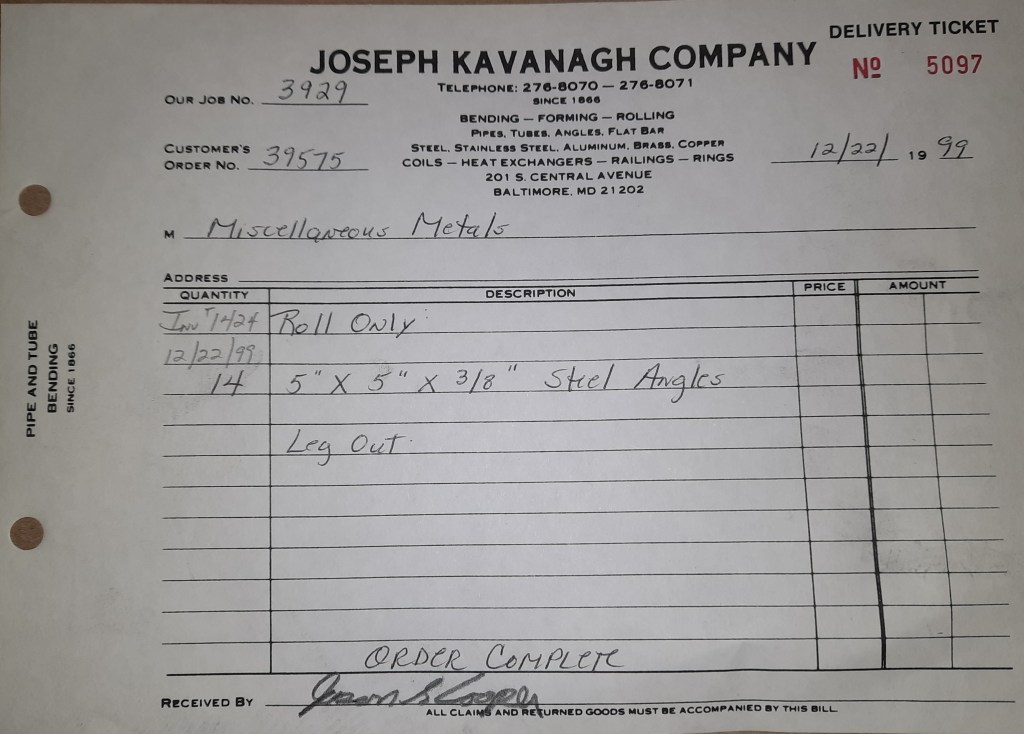 DELIVERY TICKET
JOSEPH KAVANAGH COMPANY
No 5097
TELEPHONE: 276-8070 — 276-8071
SINCE 1866
OUR JOB NO. 3929
BENDING — FORMING — ROLLING
PIPES, TUBES, ANGLES, FLAT BAR
STEEL, STAINLESS STEEL, ALUMINUM, BRASS, COPPER
COILS — HEAT EXCHANGERS — RAILINGS — RINGS
201 S. CENTRAL AVENUE
BALTIMORE, MD 21202
CUSTOMER'S
ORDER NO. 39575
12/22/ 19 99
M Miscellaneous Metals
ADDRESS
QUANTITY DESCRIPTION PRICE AMOUNT
Inv # 1424 Roll Only
12/22/99
14 5" X 5" X 3/8" Steel Angles
Leg Out
ORDER COMPLETE
RECEIVED BY Jason S Cooper
ALL CLAIMS AND RETURNED GOODS MUST BE ACCOMPANIED BY THIS BILL
PIPE AND TUBE
BENDING
SINCE 1866